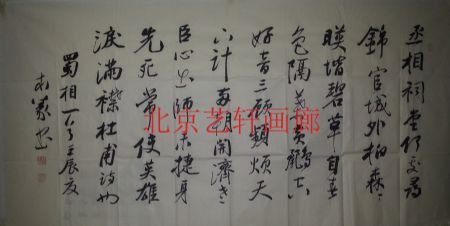 丞相祠堂何处寻
锦官城外柏森々
映堦碧草自春
色隔叶黄鹂空
好音三顾频烦天
下计两朝开济老
臣心出师未捷身
先死常使英雄
泪满襟杜甫诗
蜀相一首壬辰夏
北京艺轩画廊